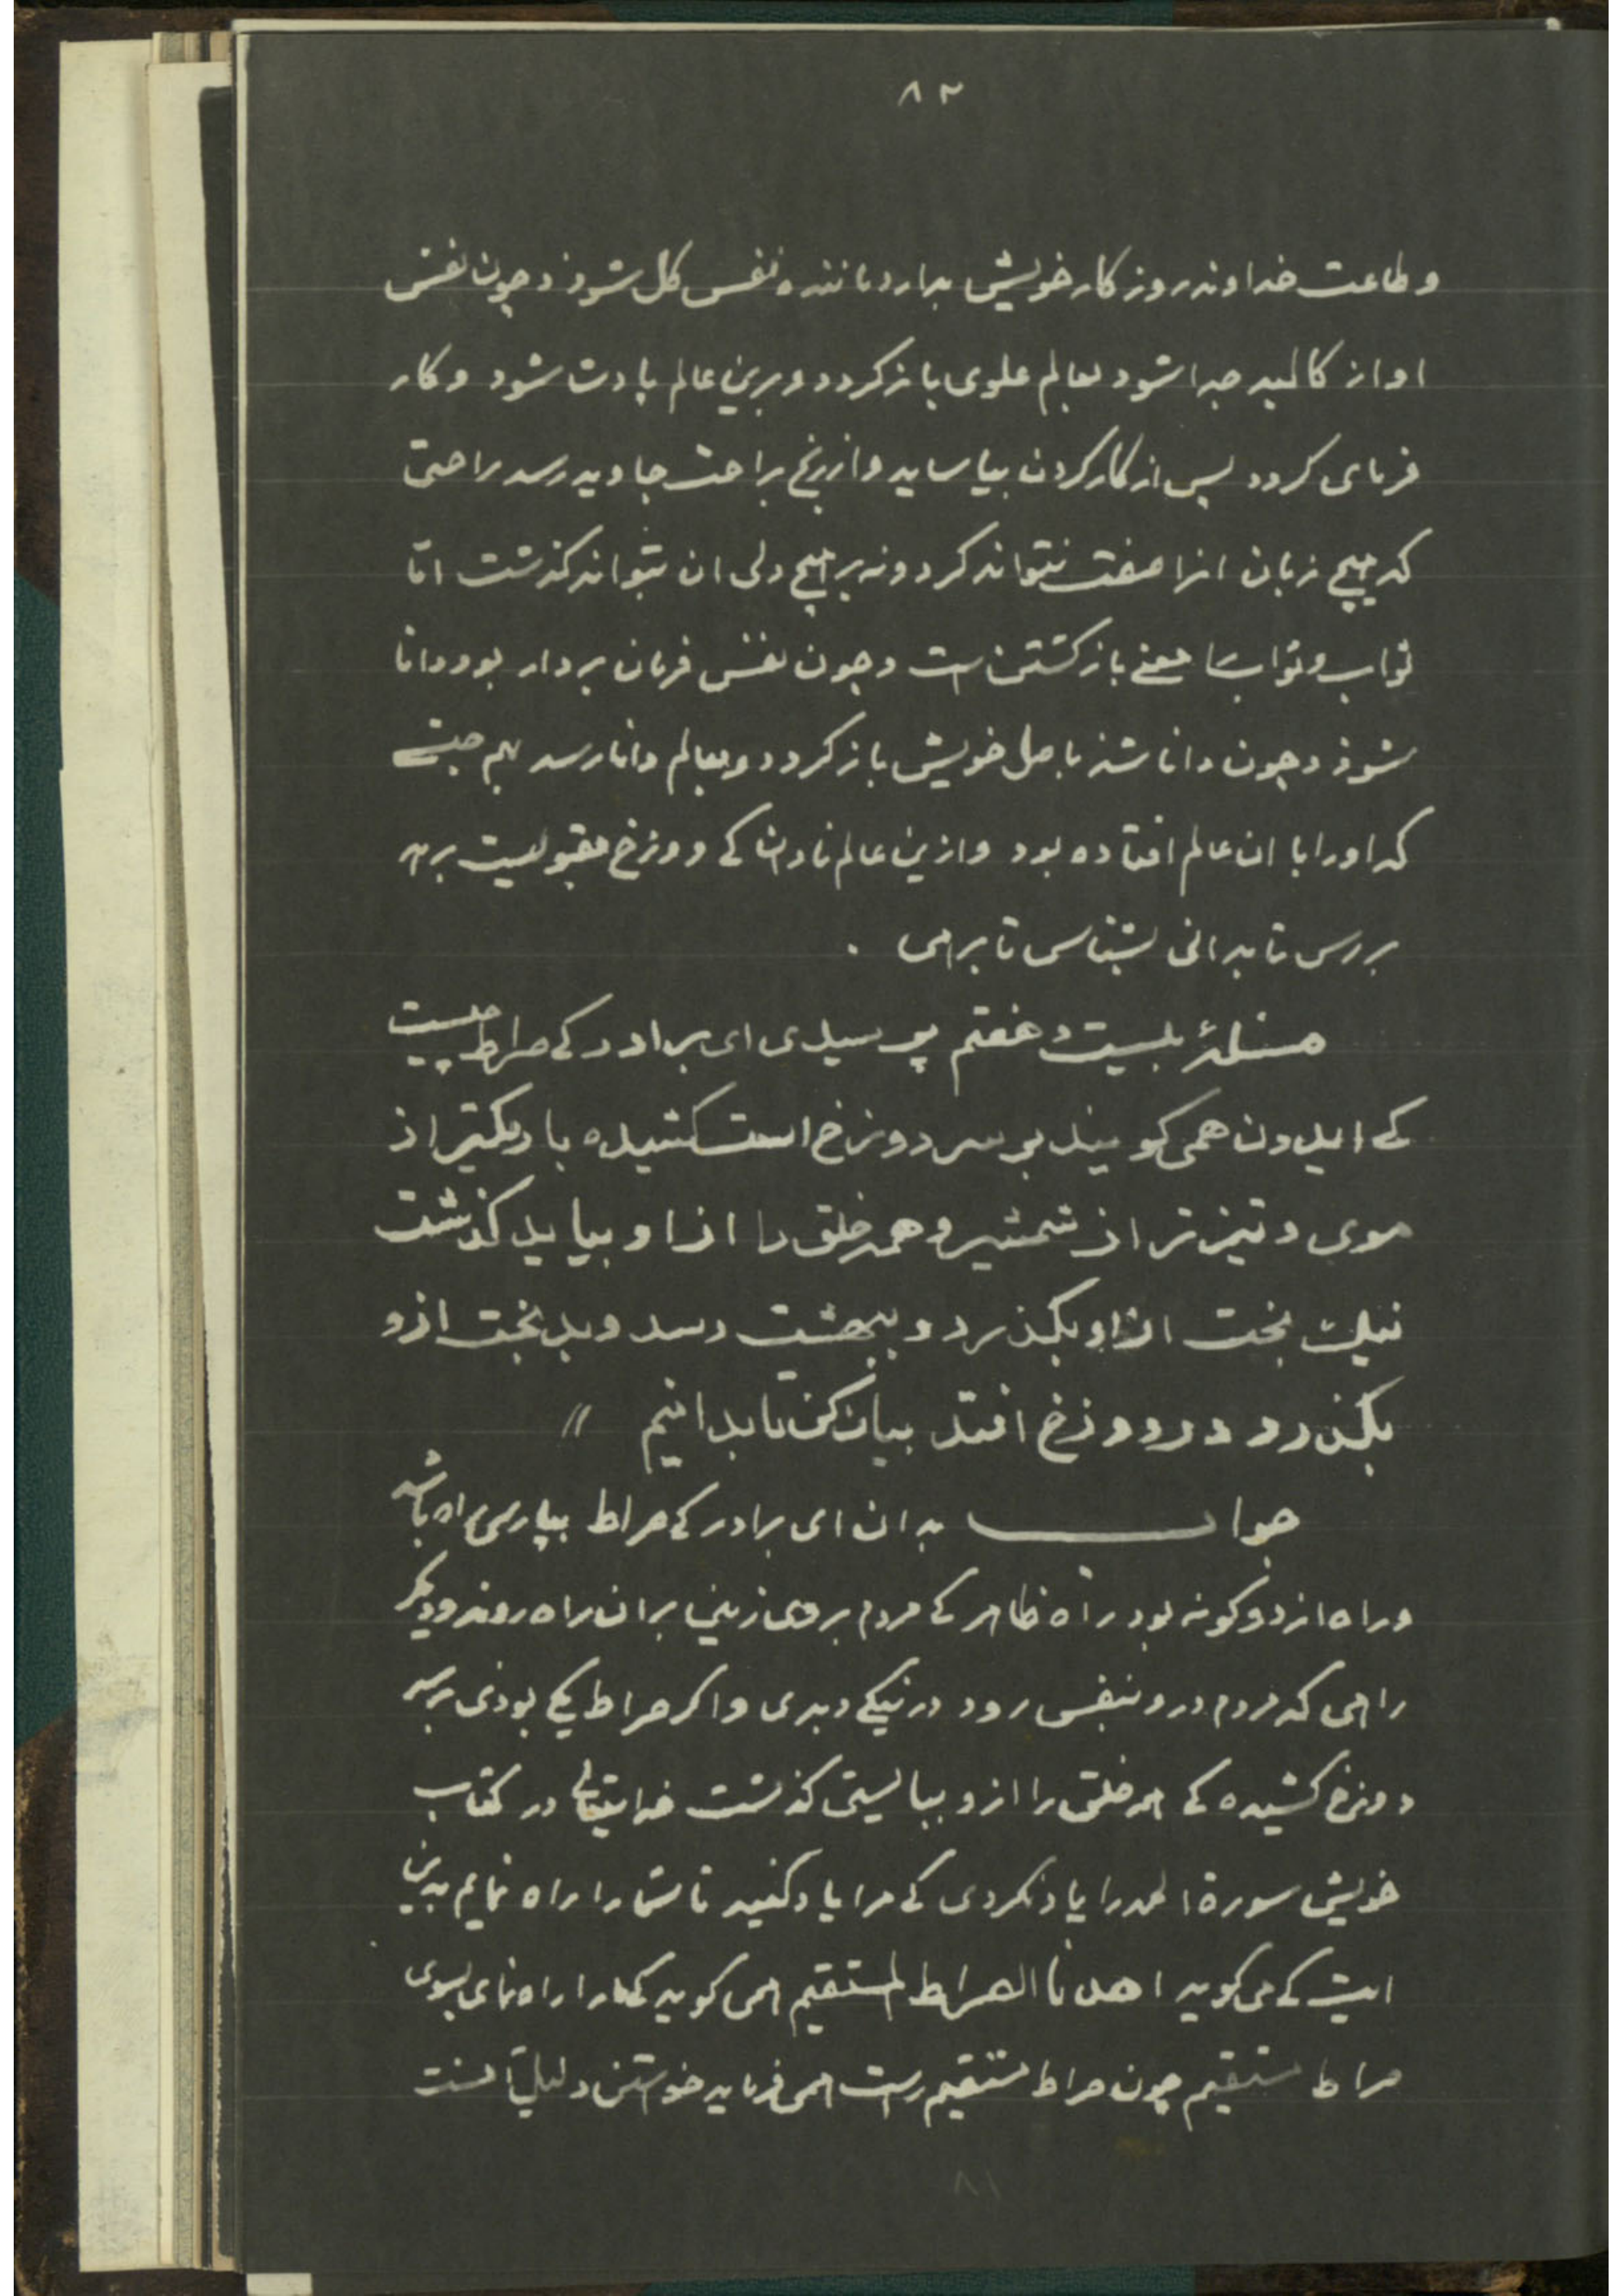 ۸۲
و طاعت خداوند روز کار خویش بدارد ماننده نفس کل شوذ و چون نفس
او از کالبد جدا شود بعالم علوی باز کردد و برین عالم پادشا شود و کار
فرمای کردد پس از کار کردن بیاساید و از رنج براحت جاوید رسد راحتی
که هیچ زبان انرا صفت نتواند کرد و نه بر هیچ دلی ان بتواند کذشت اما
ثواب و ثواب معنی باز کشتن است و چون نفس فرمان بردار بود دانا
شوذ و چون دانا شد باصل خویش باز کردد و بعالم دانا رسد بهم جنسی
که او را با ان عالم افتاده بود و ازین عالم نادان کی دوزخ برهد
بررس تا بدانی بشناس تا برهی .
مسئلهٔ بیست و هفتم پرسیدی ای برادر کی صراط چیست
کی ایدون همی کویند بر سر دوزخ است کشیده باریکتر از
موی و تیزتر از شمشیر و همه خلق را از او بباید کذشت
نیک بخت از او بکذرد و ببهشت رسد و بدبخت ازو
بکذرد و در دوزخ افتد بیان کن تا بدانیم //
جواب بدان ای برادر کی صراط بپارسی راه باشد
و راه از دو کونه بود راه ظاهر کی مردم بر روی زمین بران راه روند و دیکر
راهی که مردم درو بنفس رود در نیکی و بدی و اکر صراط یکی بوذی بر سر
دوزخ کشیده کی همه خلق را ازو ببایستی کذشت خدایتعالی در کتاب
خویش سورة الحمد را یاد نکردی کی مرا یاد کنید تا شما را راه نمایم بدین
ایت کی می کوید اهدنا الصراط المستقیم همی کوید کی مارا راه نمای بسوی
صراط مستقیم چون صراط مستقیم راست همی فرماید خواستن دلیل انست
۸۱